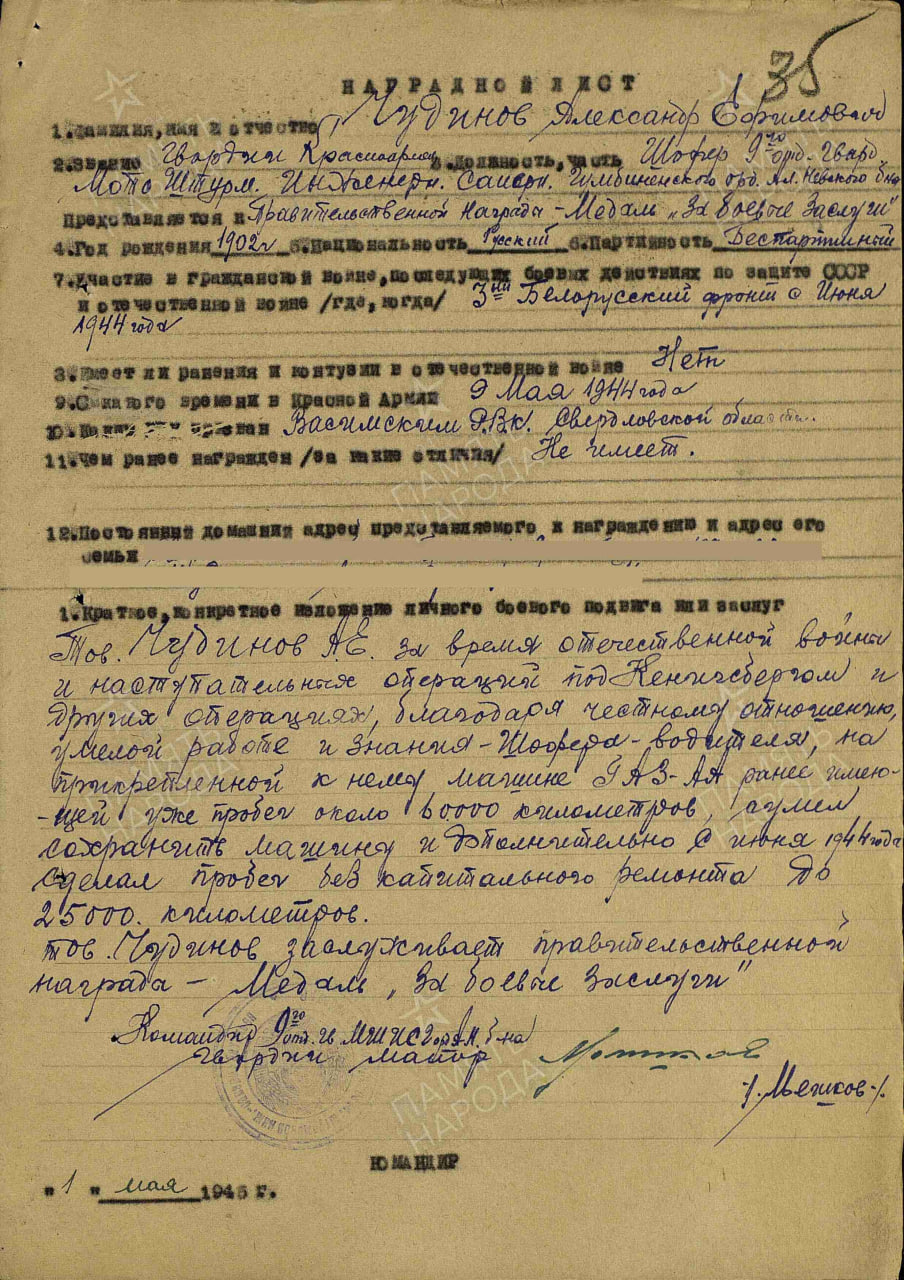 35
НАГРАДНОЙ ЛИСТ
1.Фамилия,имя и отчество Чудинов Александр Ефимович
2.Звание Гвардии Красноармеец 3.Должность,часть Шофер 9го отд. Гвард.
Мото Штурм. Инженерн. Саперн. Гумбиненского орд. Ал. Невского б-на
Представляется к Правительственной Награды - Медаль "За боевые Заслуги"
4.Год рождения 1902г 5.Национальность Русский 6.Партийность Беспартийный
7.Участие в гражданской войне,последующих боевых действиях по защите СССР
и отечественной войне /где,когда/ 3ий Белорусский фронт с Июня
1944 года
8.Имеет ли ранения и контузии в отечественной войне Нет
9.С какого времени в Красной Армии 9 Мая 1944 года
10.Каким призван Р.В.К. Свердловской области.
11.Чем ранее награжден /за какие отличия/ Не имеет.
12.Постоянный домашний адрес представляемого к награждению и адрес его
семьи
1.Краткое,конкретное изложение личного боевого подвига или заслуг
Тов. Чудинов А.Е. за время отечественной войны
и наступательных операций под Кенигсбергом и
других операциях, благодаря честному отношению,
умелой работе и знания - Шофера - водителя, на
прикрепленной к нему машине ГАЗ-АА ранее имею-
-щей уже пробег около 60000 километров, сумел
сохранить машину и дополнительно с июня 1944 года
сделал пробег без капитального ремонта до
25000. километров.
тов. Чудинов заслуживает правительственной
награда - Медаль "За боевые Заслуги"
Командир 9го отд. гв. МШИСГорАН. б-на
Гвардии майор
/. Мешков ./.
КОМАНДИР
"1" мая 1945 г.
ПАМЯТЬ НАРОДА